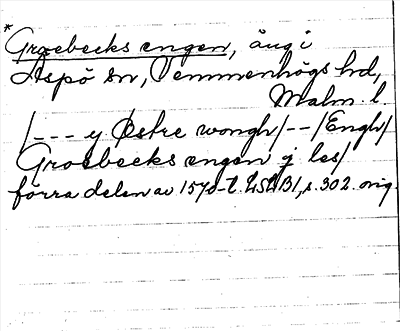 * Groebecks engen, äng i
Äspö sn, Vemmenhögs hd,
Malm. l.
/--- y Østre wongh/--/Engh/
Groebecks engen j les/
förra delen av 1570-t. LSLB1, s. 302. orig.